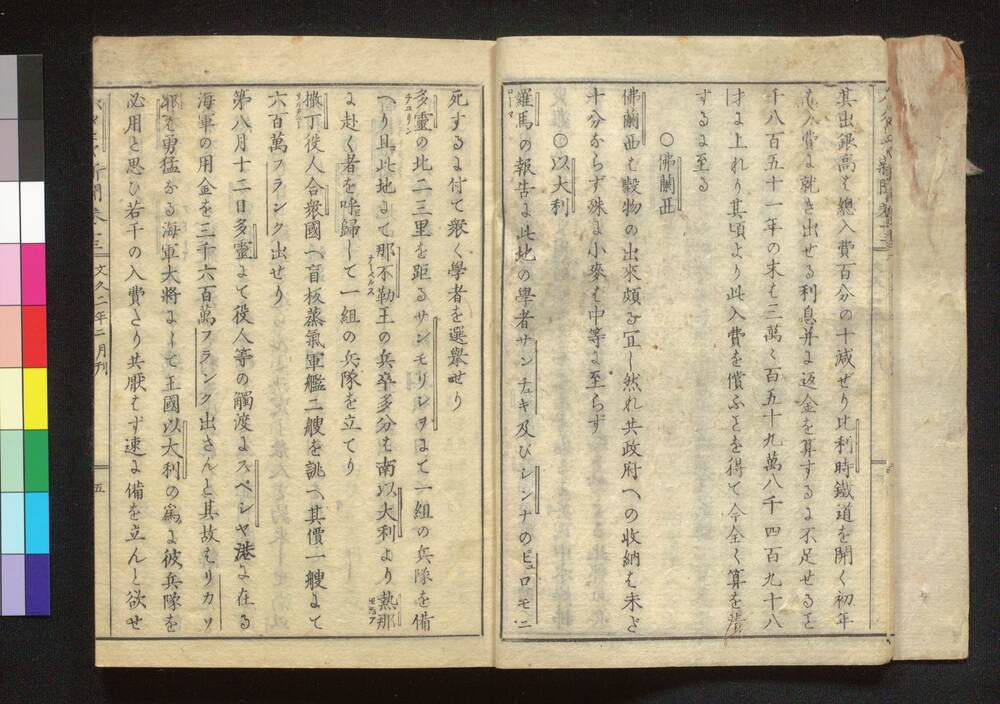 其出銀高も總入費百分の十減せり比利時鐵道を開く初年
も入費に就き出せる利息并に返金を算するに不足せると
千八百五十一年の末も三萬〻百五十九萬八千四百九十八
才に上れり其頃より此入費を償ふとを得て今全く算を
するに至る
○佛蘭西
佛蘭西も穀物の出來頗る冝し然れ共政府への收納も未ど
十分ならず殊に小麥も中等に至らず
○以大利
羅馬の報告に此地の學者サンチユキ及びレンナのピユロモニ
ローマ
死するに付て衆く學者を選擧せり
多靈の北二三里を距るサンモリシヲにて一組の兵隊を備
チユリン
へり且此地にて那不勒王の兵卒多分も南以大利より熱那
ナーペルス
ゼノア
に赴く者を呼歸して一組の兵隊を立てり
撒丁役人合衆國へ盲板蒸氣軍艦二艘を誂へ其價一艘にて
六百萬フランク出せり
第八月十二日多靈にて役人等の觸渡にスペシヤ港に在る
海軍の用金を三千六百萬フランク出さんと其故もリカソ
邪も勇猛なる海軍大將にして王國以大利の爲に彼兵隊を
必用と思ひ若干の入費とり共厭もず速に備を立んと欲せ
文久二年二月刊
五